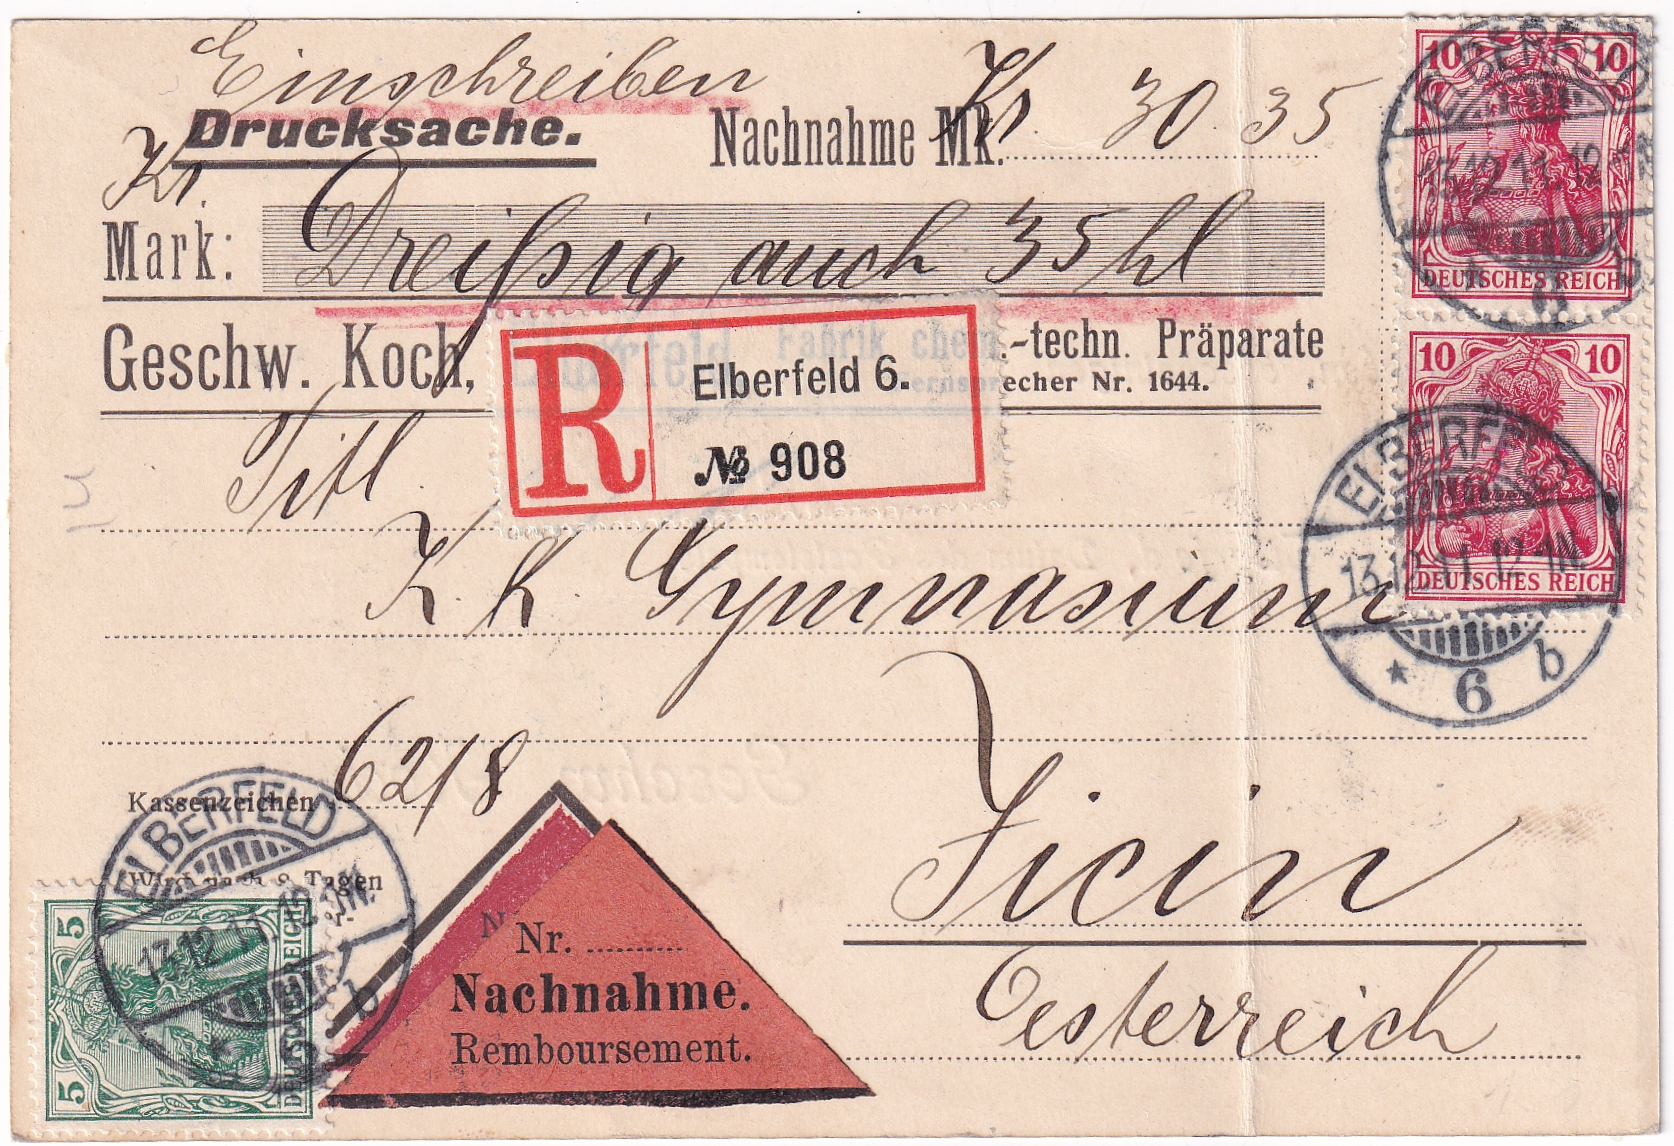 Einschreiben
Drucksache. Nachnahme Mk. Kr. 30.35
Kr.
Mark: Dreißig auch 35 hl
Geschw. Koch, Elberfeld Fabrik chem.-techn. Präparate
Fernsprecher Nr. 1644.
R
Elberfeld 6.
№ 908
Titl.
K. K. Gymnasium
Jicin
Oesterreich
Kassenzeichen 62/8
Wird nach 8 Tagen
Nr. ..........
Nachnahme.
Remboursement.
10 10
DEUTSCHES REICH
10 10
DEUTSCHES REICH
ELBERFELD
13.12.11.12-1N.
* 6 b
ELBERFELD
13.12.11.12-1N.
* 6 b
ELBERFELD
13.12.11.12-1N.
b
5 5
DEUTSCHES REICH